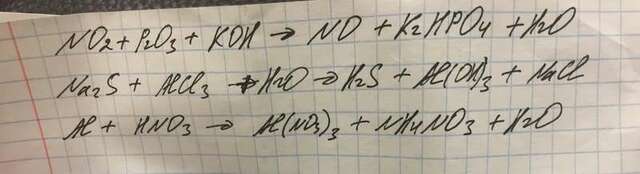 NO2 + P2O3 + KOH → NO + K2HPO4 + H2O
Na2S + AlCl3 + H2O → H2S + Al(OH)3 + NaCl
Al + HNO3 → Al(NO3)3 + NH4NO3 + H2O